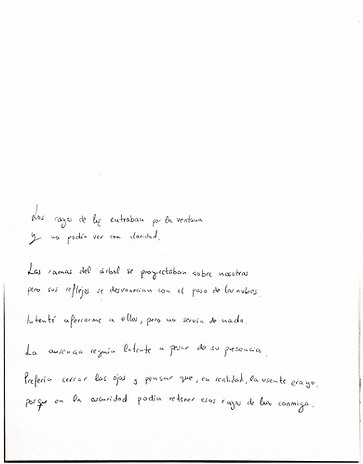 Los rayos de luz entraban por la ventana
y no podía ver con claridad.
Las ramas del árbol se proyectaban sobre nosotras
pero sus reflejos se desvanecían con el paso de las nubes.
Intenté aferrarme a ellas, pero no servía de nada.
La ausencia seguía latente a pesar de su presencia.
Prefería cerrar los ojos y pensar que, en realidad, la ausente era yo.
porque en la oscuridad podía retener esos rayos de luz conmigo.